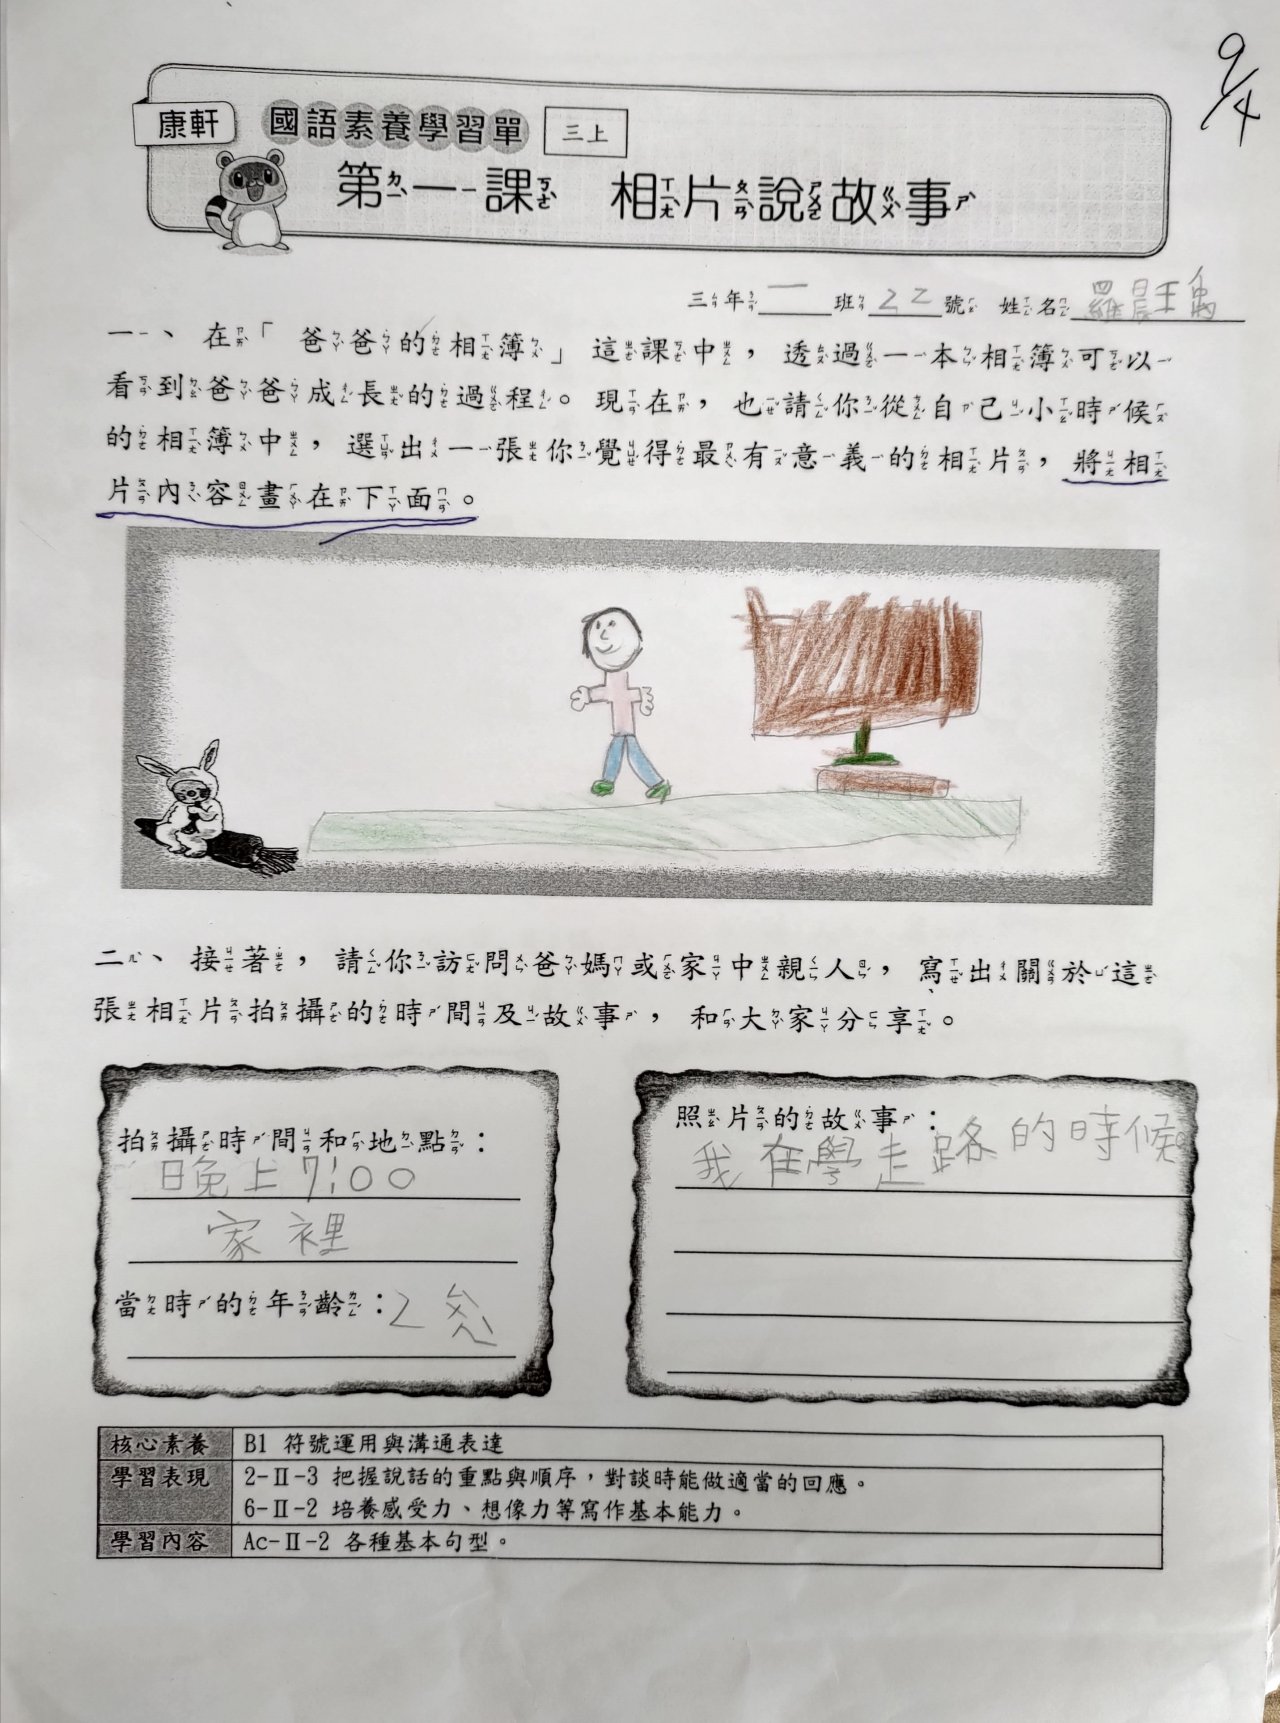 9/4
康軒 國語素養學習單 三上
第一課 相片說故事
三年一班22號 姓名羅晨
一、在「爸爸的相簿」這課中，透過一本相簿可以
看到爸爸成長的過程。現在，也請你從自己小時候
的相簿中，選出一張你覺得最有意義的相片，將相
片內容畫在下面。
二、接著，請你訪問爸媽或家中親人，寫出關於這
張相片拍攝的時間及故事，和大家分享。
拍攝時間和地點：
晚上7:00
家裡
當時的年齡：2ㄙㄨㄟˋ
照片的故事：
我在學走路的時候
核心素養 B1 符號運用與溝通表達
學習表現 2-Ⅱ-3 把握說話的重點與順序，對談時能做適當的回應。
6-Ⅱ-2 培養感受力、想像力等寫作基本能力。
學習內容 Ac-Ⅱ-2 各種基本句型。